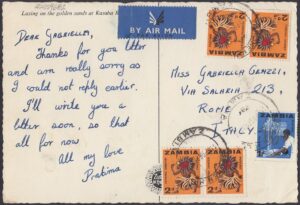 Lazing on the golden sands at Kasaba
Dear Gabriella,
Thanks for you letter
and am really sorry as
I could not reply earlier.
I'll write you a
letter soon, so that
all for now
All my love
Pratima
BY AIR MAIL
Miss Gabriella
Via Salaria 213,
Rome
Italy.
ZAMBIA
ZAMBIA
ZAMBIA
ZAMBIA
2½n
2½n